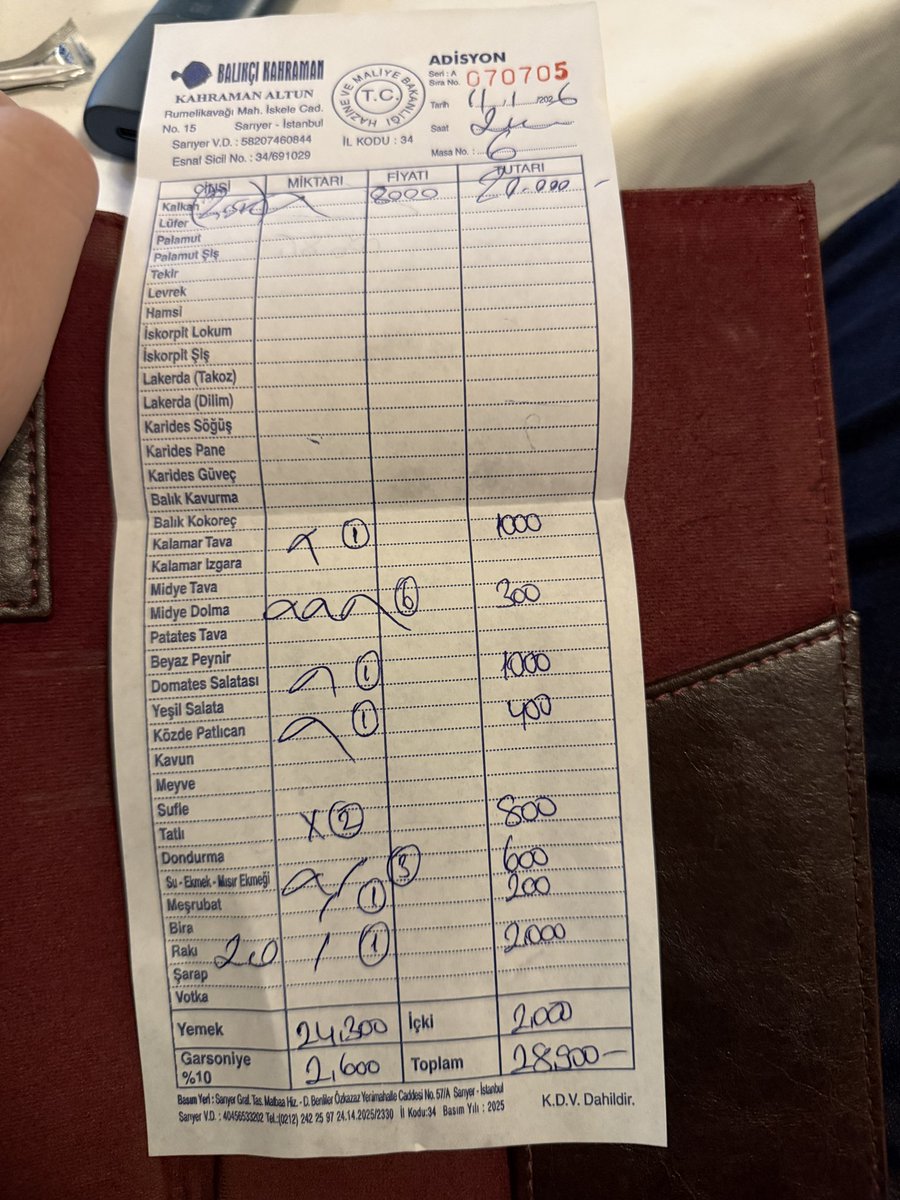 BALIKÇI KAHRAMAN
KAHRAMAN ALTUN
Rumelikavağı Mah. İskele Cad.
No. 15 Sarıyer - İstanbul
Sarıyer V.D. : 58207460844
Esnaf Sicil No. : 34/691029
HAZİNE VE MALİYE BAKANLIĞI
T.C.
İL KODU : 34
ADİSYON
Seri : A
Sıra No. 070705
Tarih /2026
Saat
Masa No. : 6
CİNSİ MİKTARI FİYATI TUTARI
Kalkan 8000
Lüfer
Palamut
Palamut Şiş
Tekir
Levrek
Hamsi
İskorpit Lokum
İskorpit Şiş
Lakerda (Takoz)
Lakerda (Dilim)
Karides Söğüş
Karides Pane
Karides Güveç
Balık Kavurma
Balık Kokoreç
Kalamar Tava 1 1000
Kalamar Izgara
Midye Tava
Midye Dolma 6 300
Patates Tava
Beyaz Peynir
Domates Salatası 1 1000
Yeşil Salata
Közde Patlıcan 1 400
Kavun
Meyve
Sufle
Tatlı X 2 800
Dondurma
Su - Ekmek - Mısır Ekmeği 3 600
Meşrubat / 1 200
Bira
Rakı 20 / 1 2.000
Şarap
Votka
Yemek 24.300 İçki 2.000
Garsoniye %10 2.600 Toplam 28.900-
Basım Yeri : Sarıyer Graf. Tas. Matbaa Hiz. - D. Benliler Özkazaz Yenimahalle Caddesi No. 57/A Sarıyer - İstanbul
Sarıyer V.D. : 40456533202 Tel.:(0212) 242 25 97 24.14.2025/2330 İl Kodu:34 Basım Yılı : 2025
K.D.V. Dahildir.